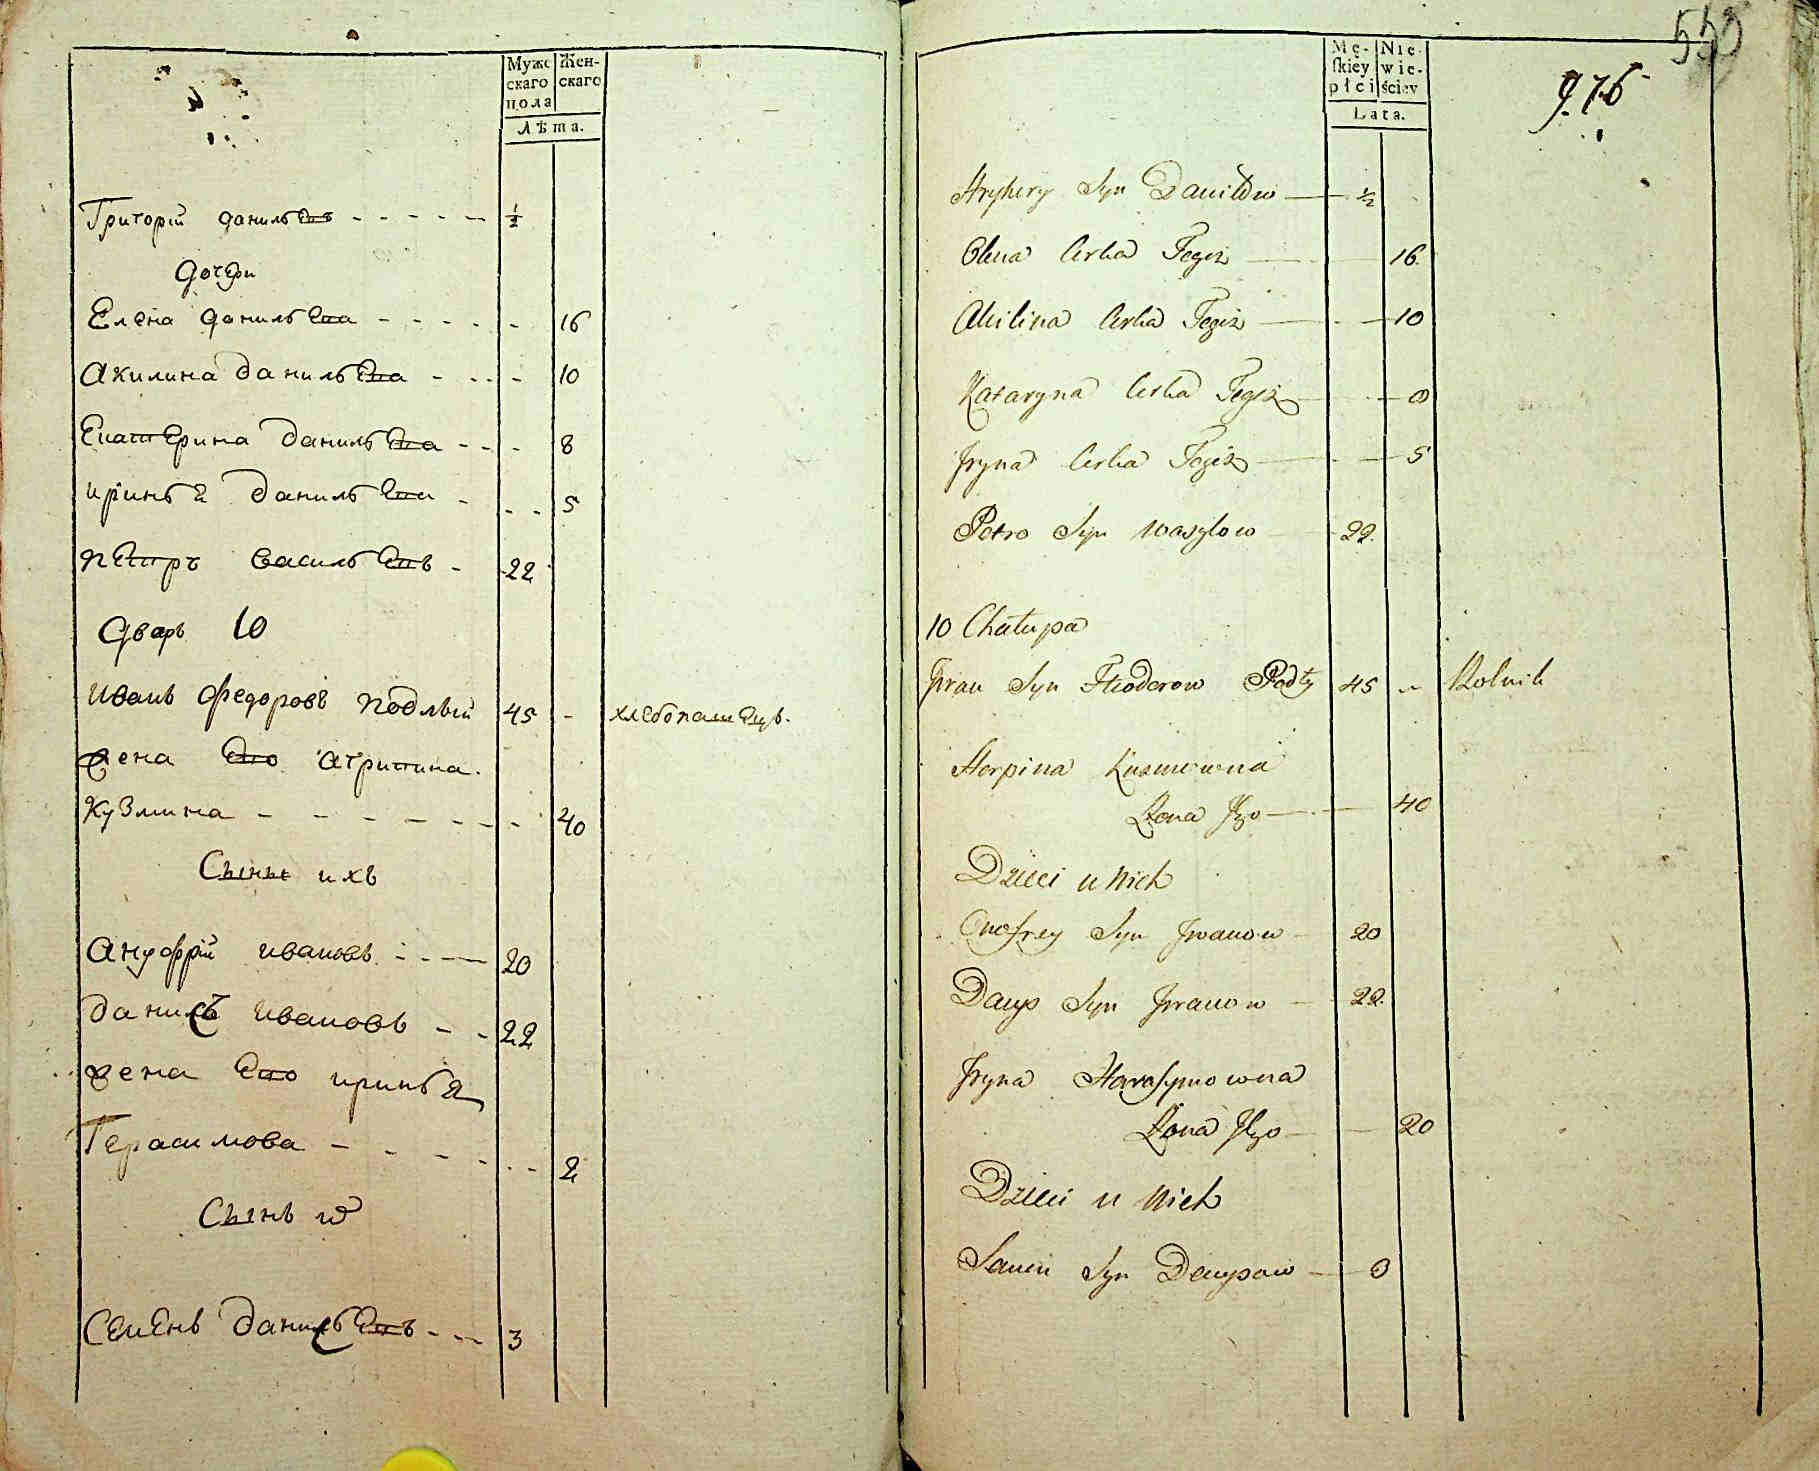 Муже
скаго
пола
Жен-
скаго
Лѣта.
Григорій данилѣвъ - - - - - ½
дочери
Елена данилѣва - - - - - 16
Акилина данилѣва - - - - 10
Екатерина данилѣва - - - 8
иринѣя данилѣва - - - 5
петръ василѣвъ - 22
дваръ 10
иванъ федоровъ подлый 45 - хлебопашецъ.
жена его агрипина
Кузмина - - - - - - - 40
Сыны ихъ
Ануфрій ивановъ - - - - 20
данилъ ивановъ - - 22
жена его иринѣя
Герасимова - - - - - - 2
Сынъ и
Семенъ данилѣвъ - - - 3
550
976
Mę-
skiey
płci
Nie-
wie-
ściey
Lata.
Hryhory Syn Daniłow — ½
Olena Curka Tegiż — 16
Akilina Curka Tegiż — 10
Kataryna Curka Tegiż — 8
Jryna Curka Tegiż — 5
Petro Syn Wasylow — 22.
10 Chałupa
Jwan Syn Fhodorow Podły 45 - Rolnik
Horpina Kusmowna
Żona Jgo — 40
Dzieci u Nich
Onofrey Syn Jwanow — 20
Danyło Syn Jwanow — 22.
Jryna Harasymowna
Żona Jego — 20
Dzieci u Nich
Syn — 3